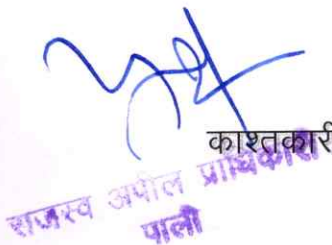 काश्तकारी
राजस्व अपील प्राधिकारी
पाली